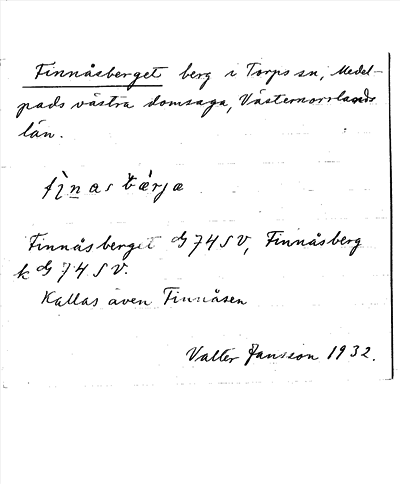 Finnåsberget berg i Torps sn, Medel-
pads västra domsaga, Västernorrlands
län.
Finnåsberget 74 SV, Finnåsberg
k 74 SV.
Kallas även Finnåsen
Valter Jansson 1932.